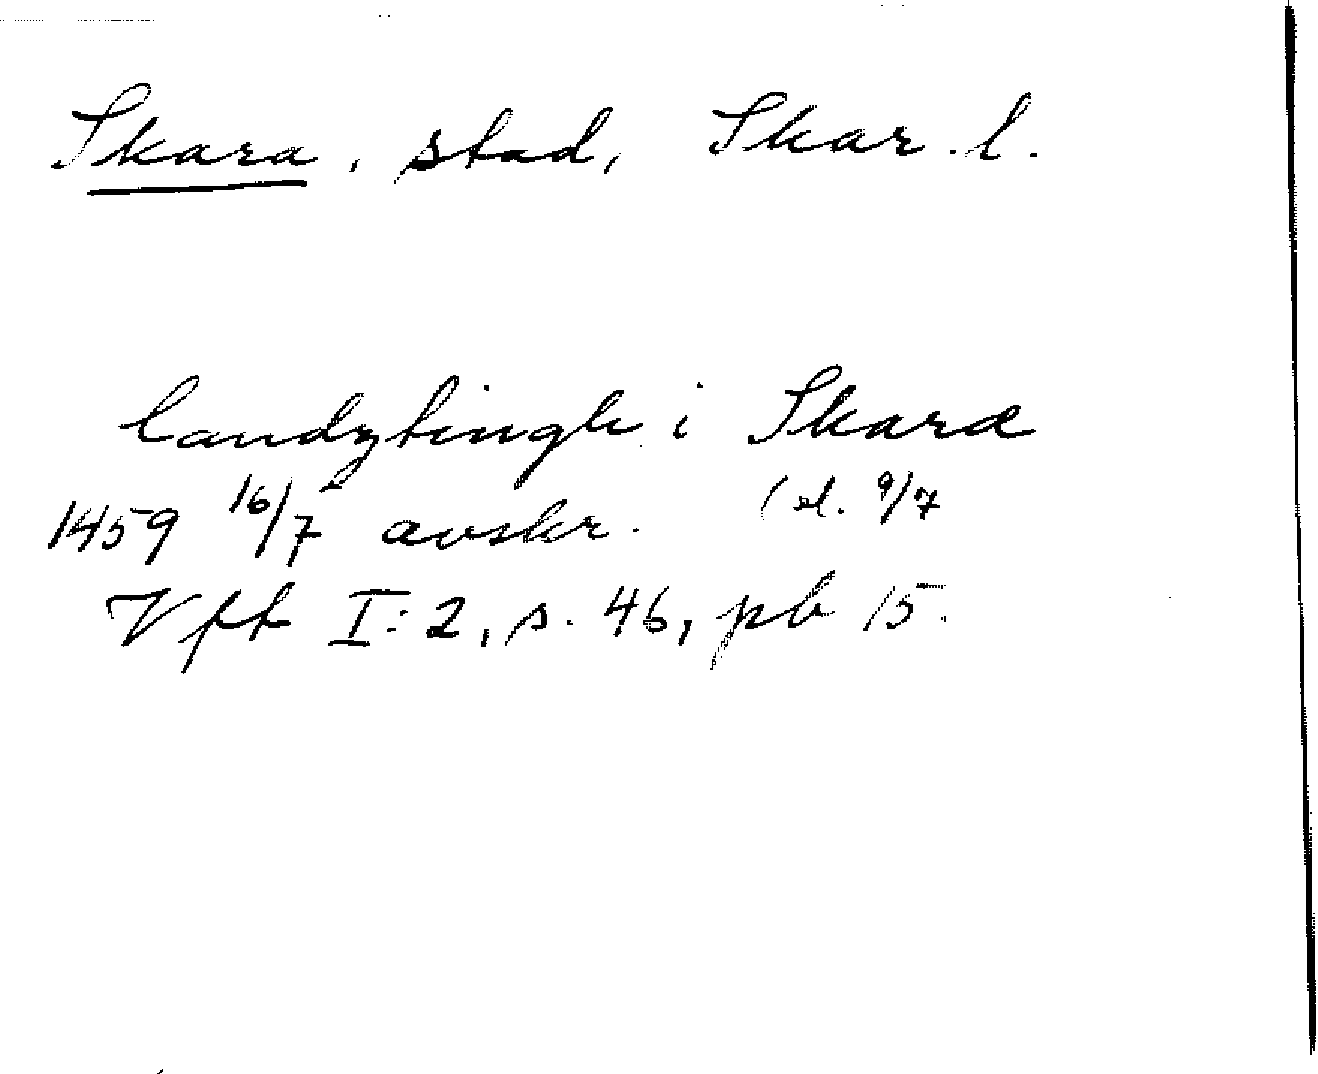 Skara, stad, Skar. l.
landztingh i Skara
1459 16/7 avskr. (el. 9/7
Vfft I:2, s. 46, pb 15.